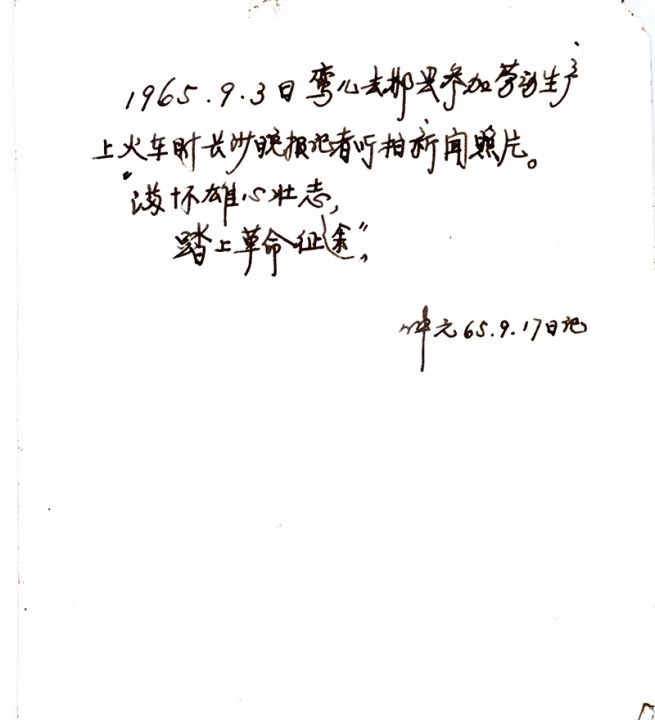 1965.9.3日弯儿去郴县参加劳动生产
上火车时长沙晚报记者所拍新闻照片。
"满怀雄心壮志,
踏上革命征途",
元65.9.17日记